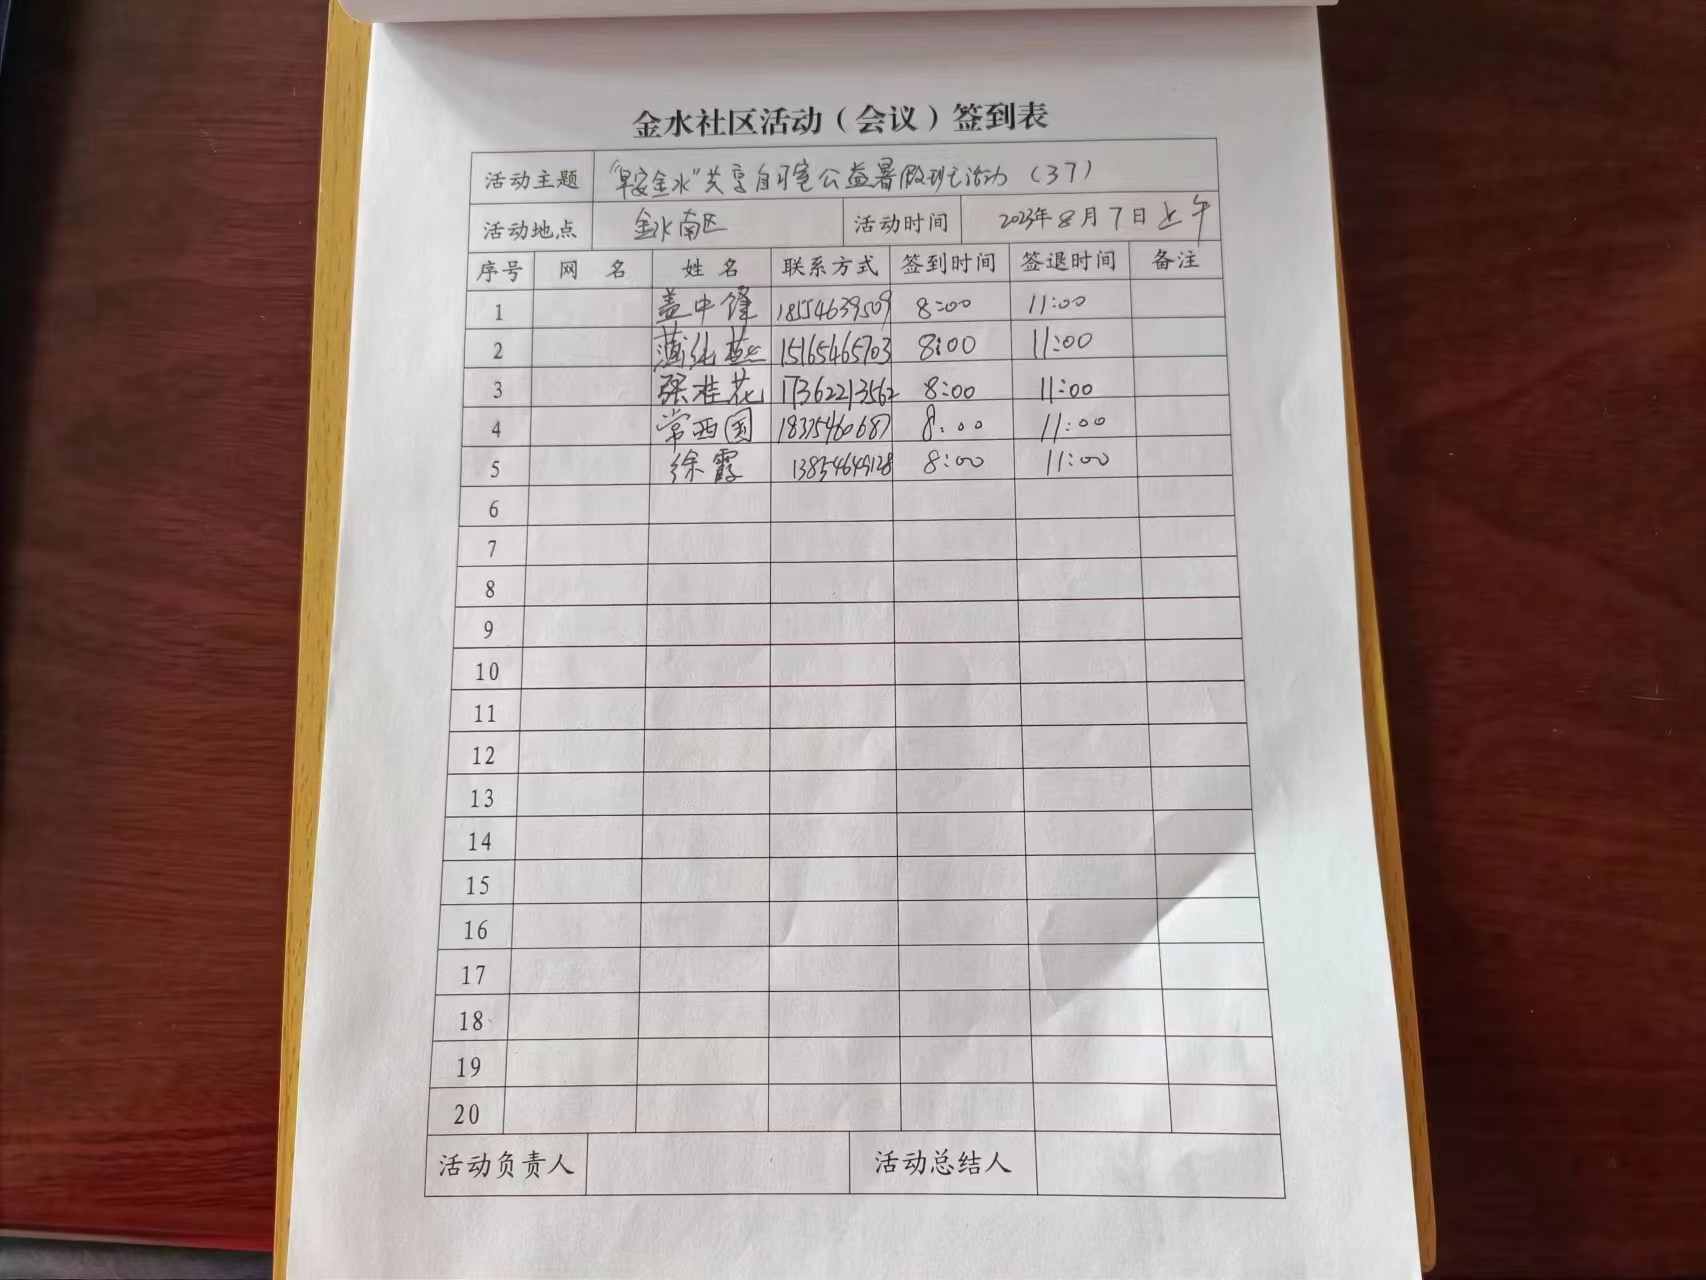 金水社区活动（会议）签到表
活动主题 “早安金水”共享自习室公益暑假班活动（37）
活动地点 金水南区 活动时间 2023年8月7日上午
序号 网 名 姓 名 联系方式 签到时间 签退时间 备注
1 盖中锋 18554639509 8:00 11:00
2 15165465703 8:00 11:00
3 张桂花 17362213562 8:00 11:00
4 常西国 18375460687 8:00 11:00
5 徐霞 13854649128 8:00 11:00
6
7
8
9
10
11
12
13
14
15
16
17
18
19
20
活动负责人 活动总结人